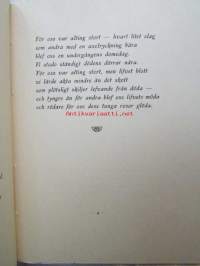 För oss var allting stort — hvart litet slag
som andra med en axelryckning bära
blef oss en undergångens domedag.
Vi stodo ständigt dödens dörrar nära.
För oss var allting stort, men lifvet blott
vi lärde akta mindre än det skott
som plötsligt skiljer lefvande från döda —
och tyngre än för andra blef oss lifvets möda
och rödare för oss dess tunga rosor glöda.